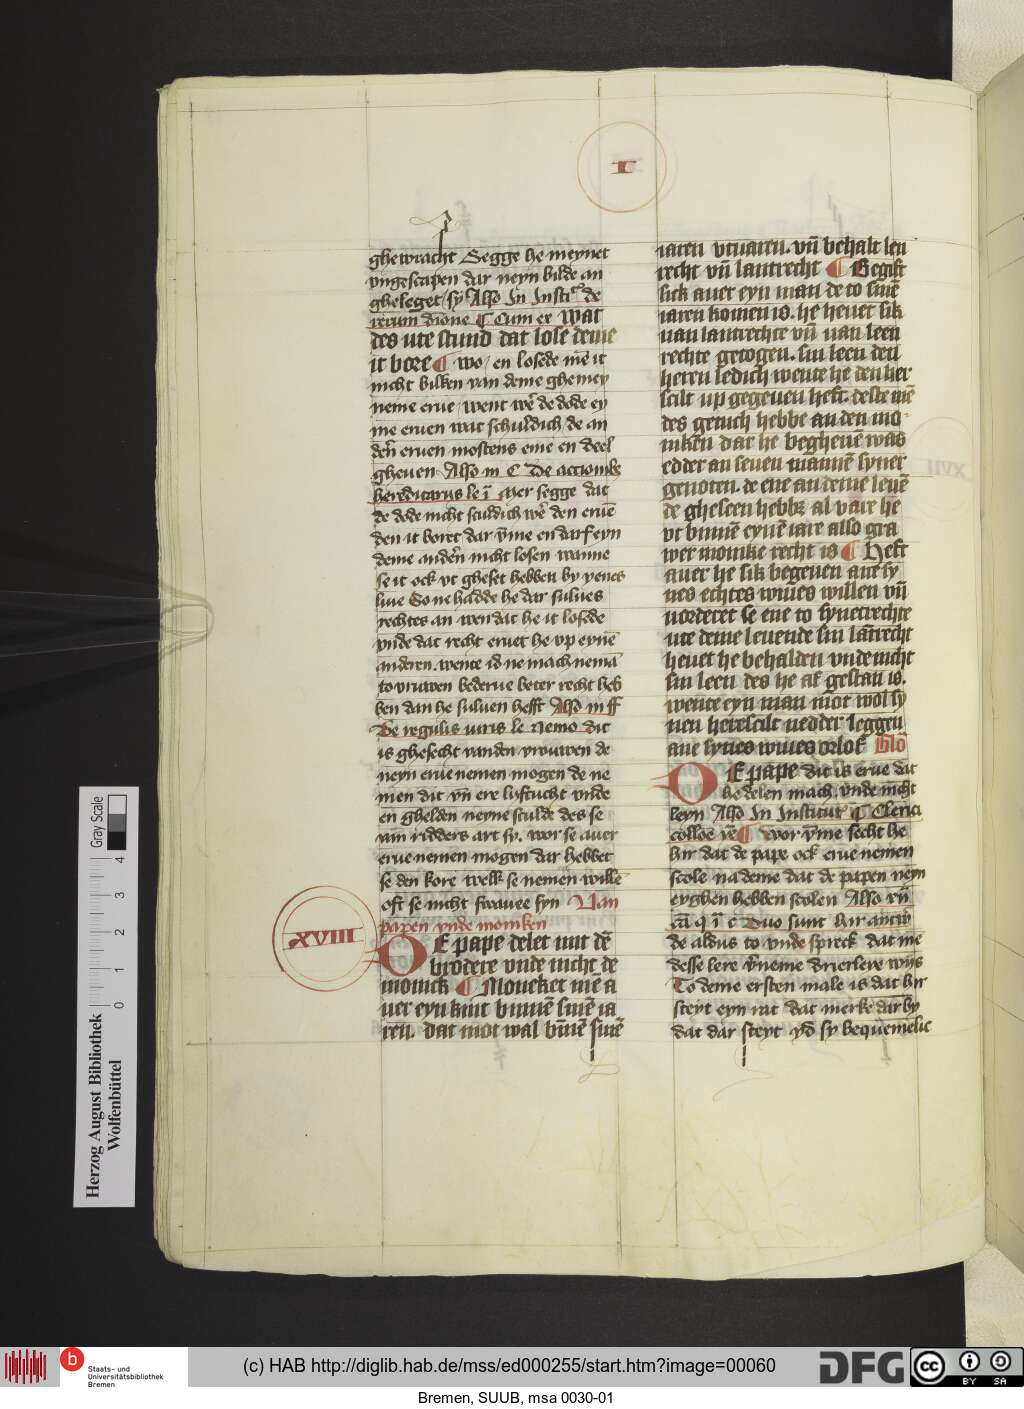 I
ghewracht Segge he meynet
vngescapen dar neyn bilde an
gheleget sy Also Jn Insti de
rerum diōne ¶ Cum ex Wat
des ute stund dat lose deme
it bore ¶ wo en losede mē it
nicht bilken van deme ghemey
neme erue went wē de dode ey
me eruen wat schuldich de an
dērn eruen mostens eme en deel
gheuen Also in C De actionibꝫ
hereditarijs le ī Mer segge dat
de dode nicht sculdich wē den eruē
den it boret dar v̄me en darf eyn
deme andēn nicht losen wanne
se it ock vt gheset hebben by yenes
liue So ne hadde he dar sulues
rechtes an wen dat he it losede
vnde dat recht eruet he vp eynē
anderen wente id ne mach nemā
to vruwen bederue beter recht heb
ben dan he suluen hefft Also in ff
De regulis iuris le Nemo dit
is ghesecht vanden vrouwen de
neyn erue nemen mogen de ne
men dit vn̄ ere lyftucht vnde
en ghelden neyne sculde des se
van ridders art sy. wor se auer
erue nemen mogen dar hebbet
se den kore welk se nemen wille
oft se nicht swauee syn Van
papen vnde moniken
XVIII
DE pape delet mit dē
brodere vnde nicht de
monick ¶ Moneket mē a
uer eyn kint binnē sinē ia
ren. dat mot wal bīnē sinē
iaren vtuaren. vn̄ behalt len
recht vn̄ lantrecht ¶ Begift
sick auer eyn man de to sinē
iaren komen is. he heuet sik
uan lantrechte vn̄ uan leen
rechte getogen. sin leen den
heren ledich wente he den her
scilt up gegeuen heft. deste mē
des getuch hebbe an den mo
niken dar he begheuē was
edder an seuen mānnē syner
genoten. de ene an deme leuē
de gheseen hebbꝫ al vair he
vt binnē eynē iare also gra
wer monike recht is ¶ Heft
auer he sik begeuen ane sy
nes echtes wiues willen vn̄
uorderet se ene to synetrechte
ute deme leuende sin lātrecht
heuet he behalden vnde nicht
sin leen des he af gestan is.
wente eyn man mot wol sy
nen herescilt nedder leggen
ane synes wiues orlof Glō
DE pape dit is erue dat
he delen mach. vnde nicht
leyn Also In Institut ¶ Clerici
colloe re ¶ Wor v̄me secht he
hir dat de pape ock erue nemen
scole na deme dat de papen neyn
eyghen hebben scolen Also xij
cā q ī c Duo sunt hir antw
de aldus to vnde spreck dat me
desse lere v̄neme drierleye wijs
To deme ersten male is dat hir
steyt eyn rat dat merke dar by
dat dar steyt yd sy bequemelic
Gray Scale
0 1 2 3 4
Herzog August Bibliothek
Wolfenbüttel
b
Staats- und
Universitätsbibliothek
Bremen
(c) HAB http://diglib.hab.de/mss/ed000255/start.htm?image=00060
DFG
cc BY SA
Bremen, SUUB, msa 0030-01